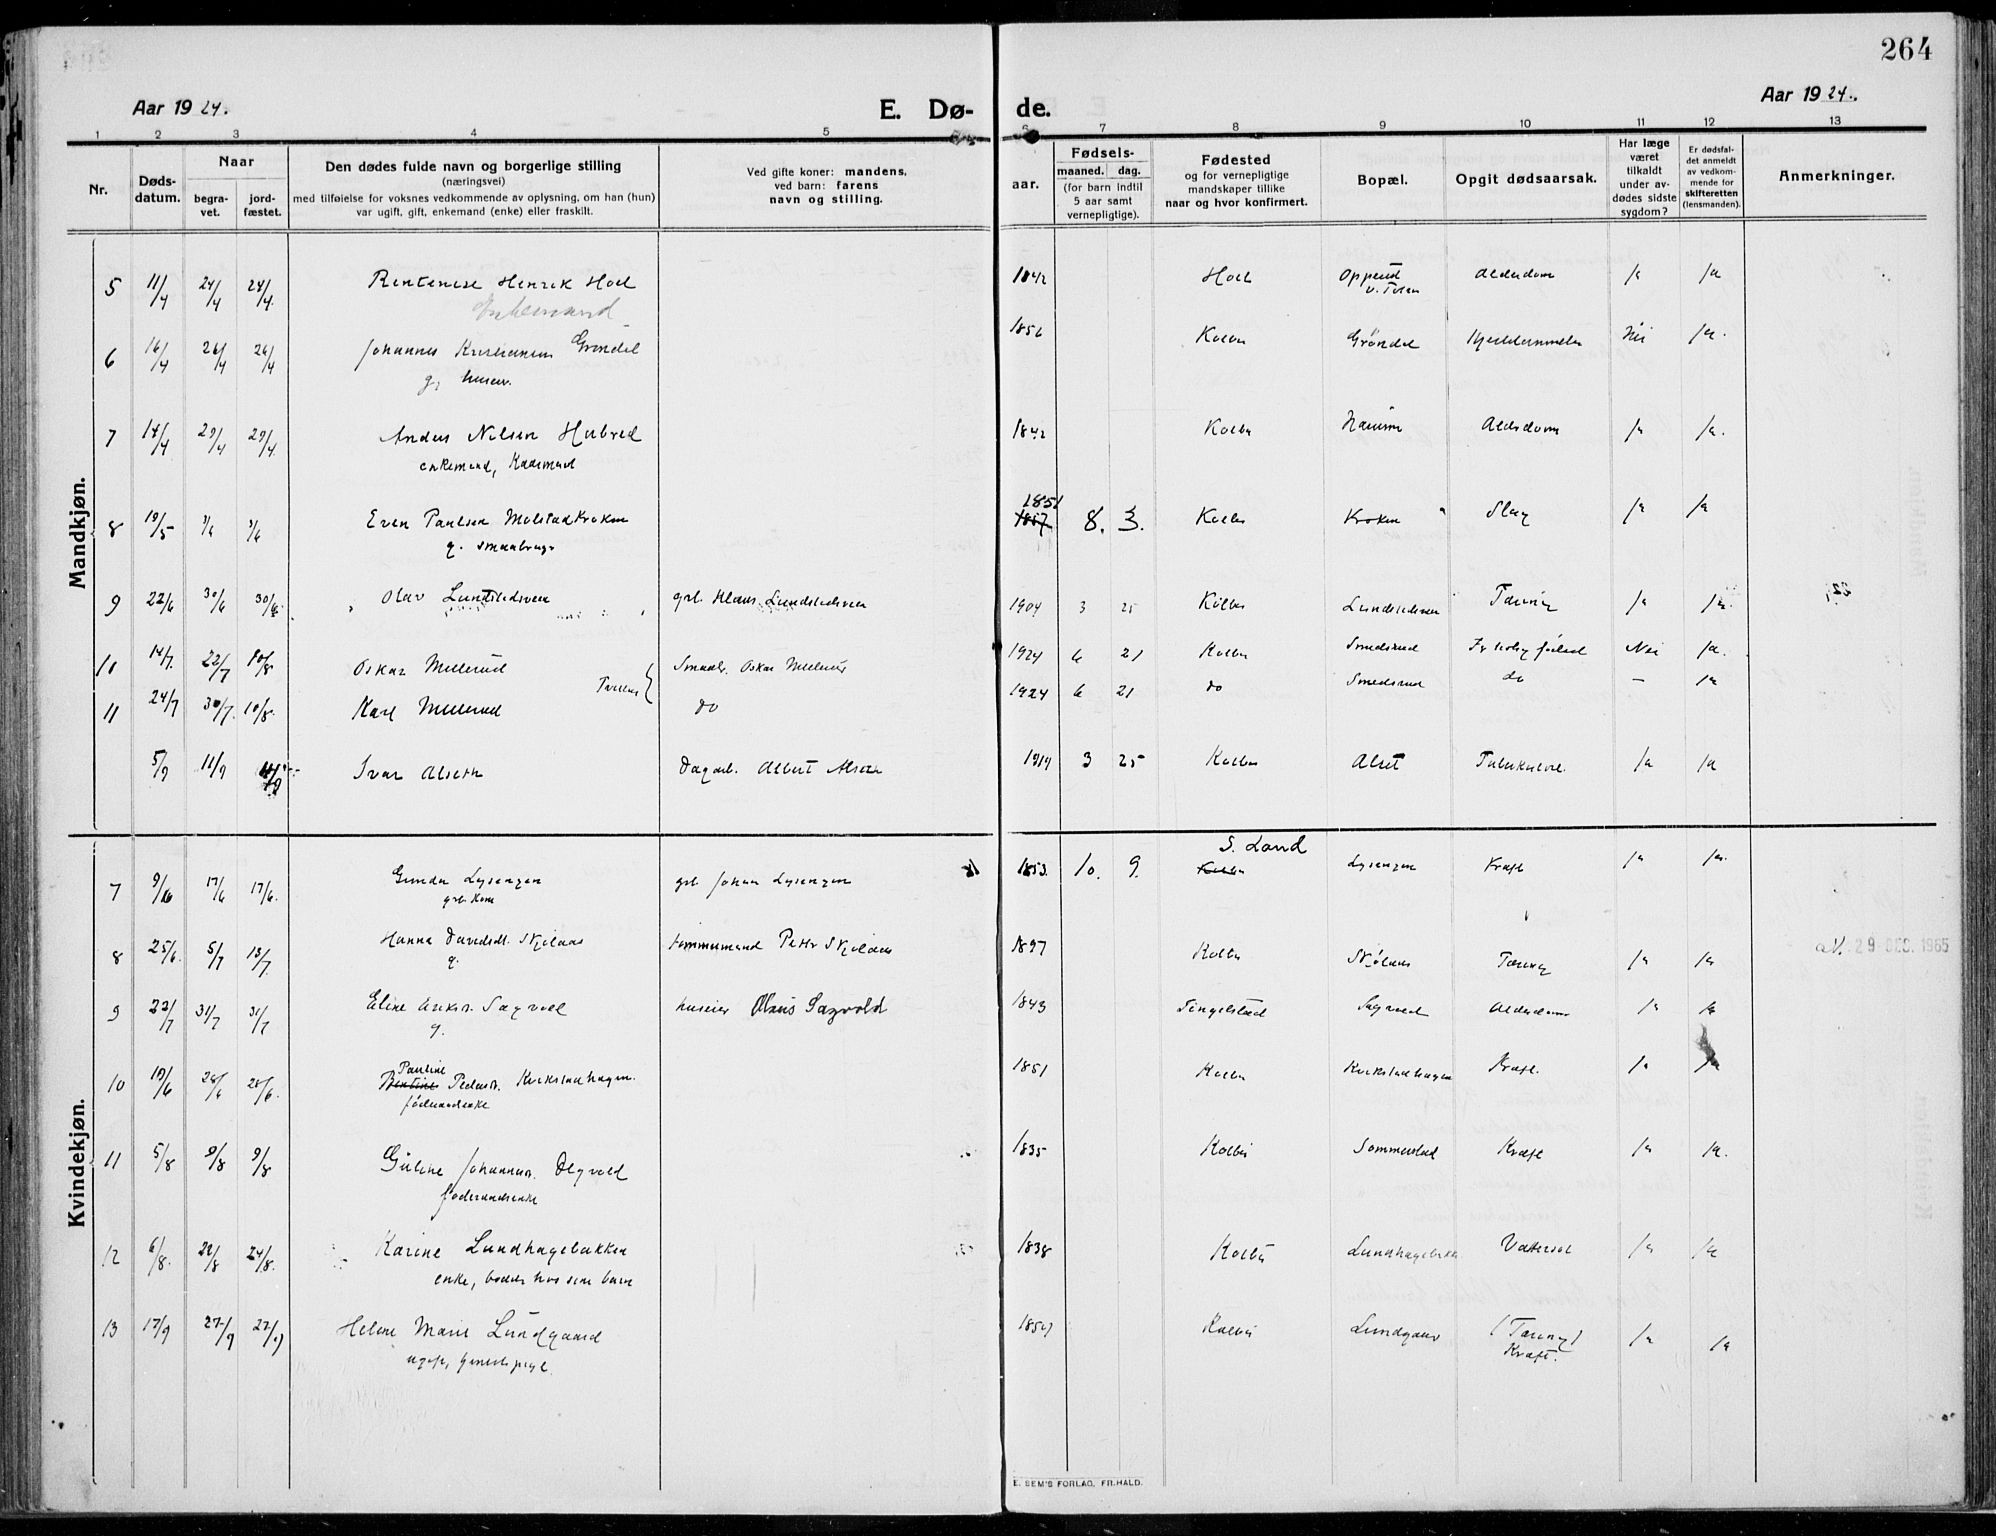 264
Aar 1924.
E. Dø-
de.
Aar 1924.
1 2 3 4 5 6 7 8 9 10 11 12 13
Nr.
Døds-
datum.
Naar
begra-
vet.
jord-
fæstet.
Den dødes fulde navn og borgerlige stilling
(næringsvei)
med tilføielse for voksnes vedkommende av oplysning, om han (hun)
var ugift, gift, enkemand (enke) eller fraskilt.
Ved gifte koner: mandens,
ved barn: farens
navn og stilling.
aar.
Fødsels-
maaned. dag.
(for barn indtil
5 aar samt
vernepligtige).
Fødested
og for vernepligtige
mandskaper tillike
naar og hvor konfirmert.
Bopæl.
Opgit dødsaarsak.
Har læge
været
tilkaldt
under av-
dødes sidste
sygdom?
Er dødsfal-
det anmeldt
av vedkom-
mende for
skifteretten
(lensmanden).
Anmerkninger.
Mandkjøn.
5 11/4 24/4 24/4. Henrik Hoel 1842 Hoel Opperud Alderdom Ja Ja
v. Toten
Enkemand
6 16/4 26/4 26/4 Johannes Grøndal 1856 Kolbu Grøndal Nei Ja.
g.
7 14/4 29/4 29/4. Anders Nilsen 1842 Kolbu Alderdom Ja Ja.
enkemand,
1851
8 19/5 3/6 3/6 Even Paulsen Molstadkroken 1857 8. 3. Kolbu Kroken Slag Ja Ja
g. smaabruger
9 22/6 30/6 30/6 Olav Lundstedsveen grb. Lundstedsveen 1904 3 25 Kolbu Lundstedsveen Tæring Ja Ja.
10 14/7. 22/7 10/8 Oskar Millerud Smaabr. Oskar Millerud 1924 6 21 Kolbu Smedsrud Nei Ja.
11 24/7 30/7. 10/8. Karl Millerud do 1924 6 21 do Smedsrud do — Ja
5/9 11/9 Ivar Alseth Dagarb. Albert Alseth 1919 3 25 Kolbu Alset Tuberkulose Ja Ja
Kvindekjøn.
S. Land
7 9/6 17/6 17/6. Gunda Lysengen grb. Johan Lysengen 1853. 10. 9. Kolbu Lysengen Kræft Ja Ja.
grb. Kone
8 25/6. 5/7 13/7. Hanna Davidsdt. Skjølaas tømmermand Petter Skjølaas 1897 Kolbu Skjølaas Tæring Ja Ja 29 DES. 1965
g.
9 22/7 31/7 31/7 Eline Sagvold huseier Olaus Sagvold 1843 Tingelstad Sagvold Alderdom Ja Ja
g.
Pauline
10 19/6 28/6 28/6. Bentine Pedersdt. Kirkstadhagen. 1851 Kolbu Kirkstadhagen Kræft. Ja Ja
føderaadsenke
11 5/8 9/8 9/8 Guline Johannesdt. 1835 Kolbu Sommerstad Kræft Ja Ja.
føderaadsenke
12 6/8. 22/8 24/8. Karine Lundhagebakken 1838 Kolbu Lundhagebakken Vattersot Ja Ja
enke, bodde hos sine barn
13 17/9 27/9 27/9 Helene Marie Lundgaard 1859 Kolbu Lundgaard (Tæring) Ja Ja
ugift, Kræft.
E. SEM'S FORLAG, FR.HALD.